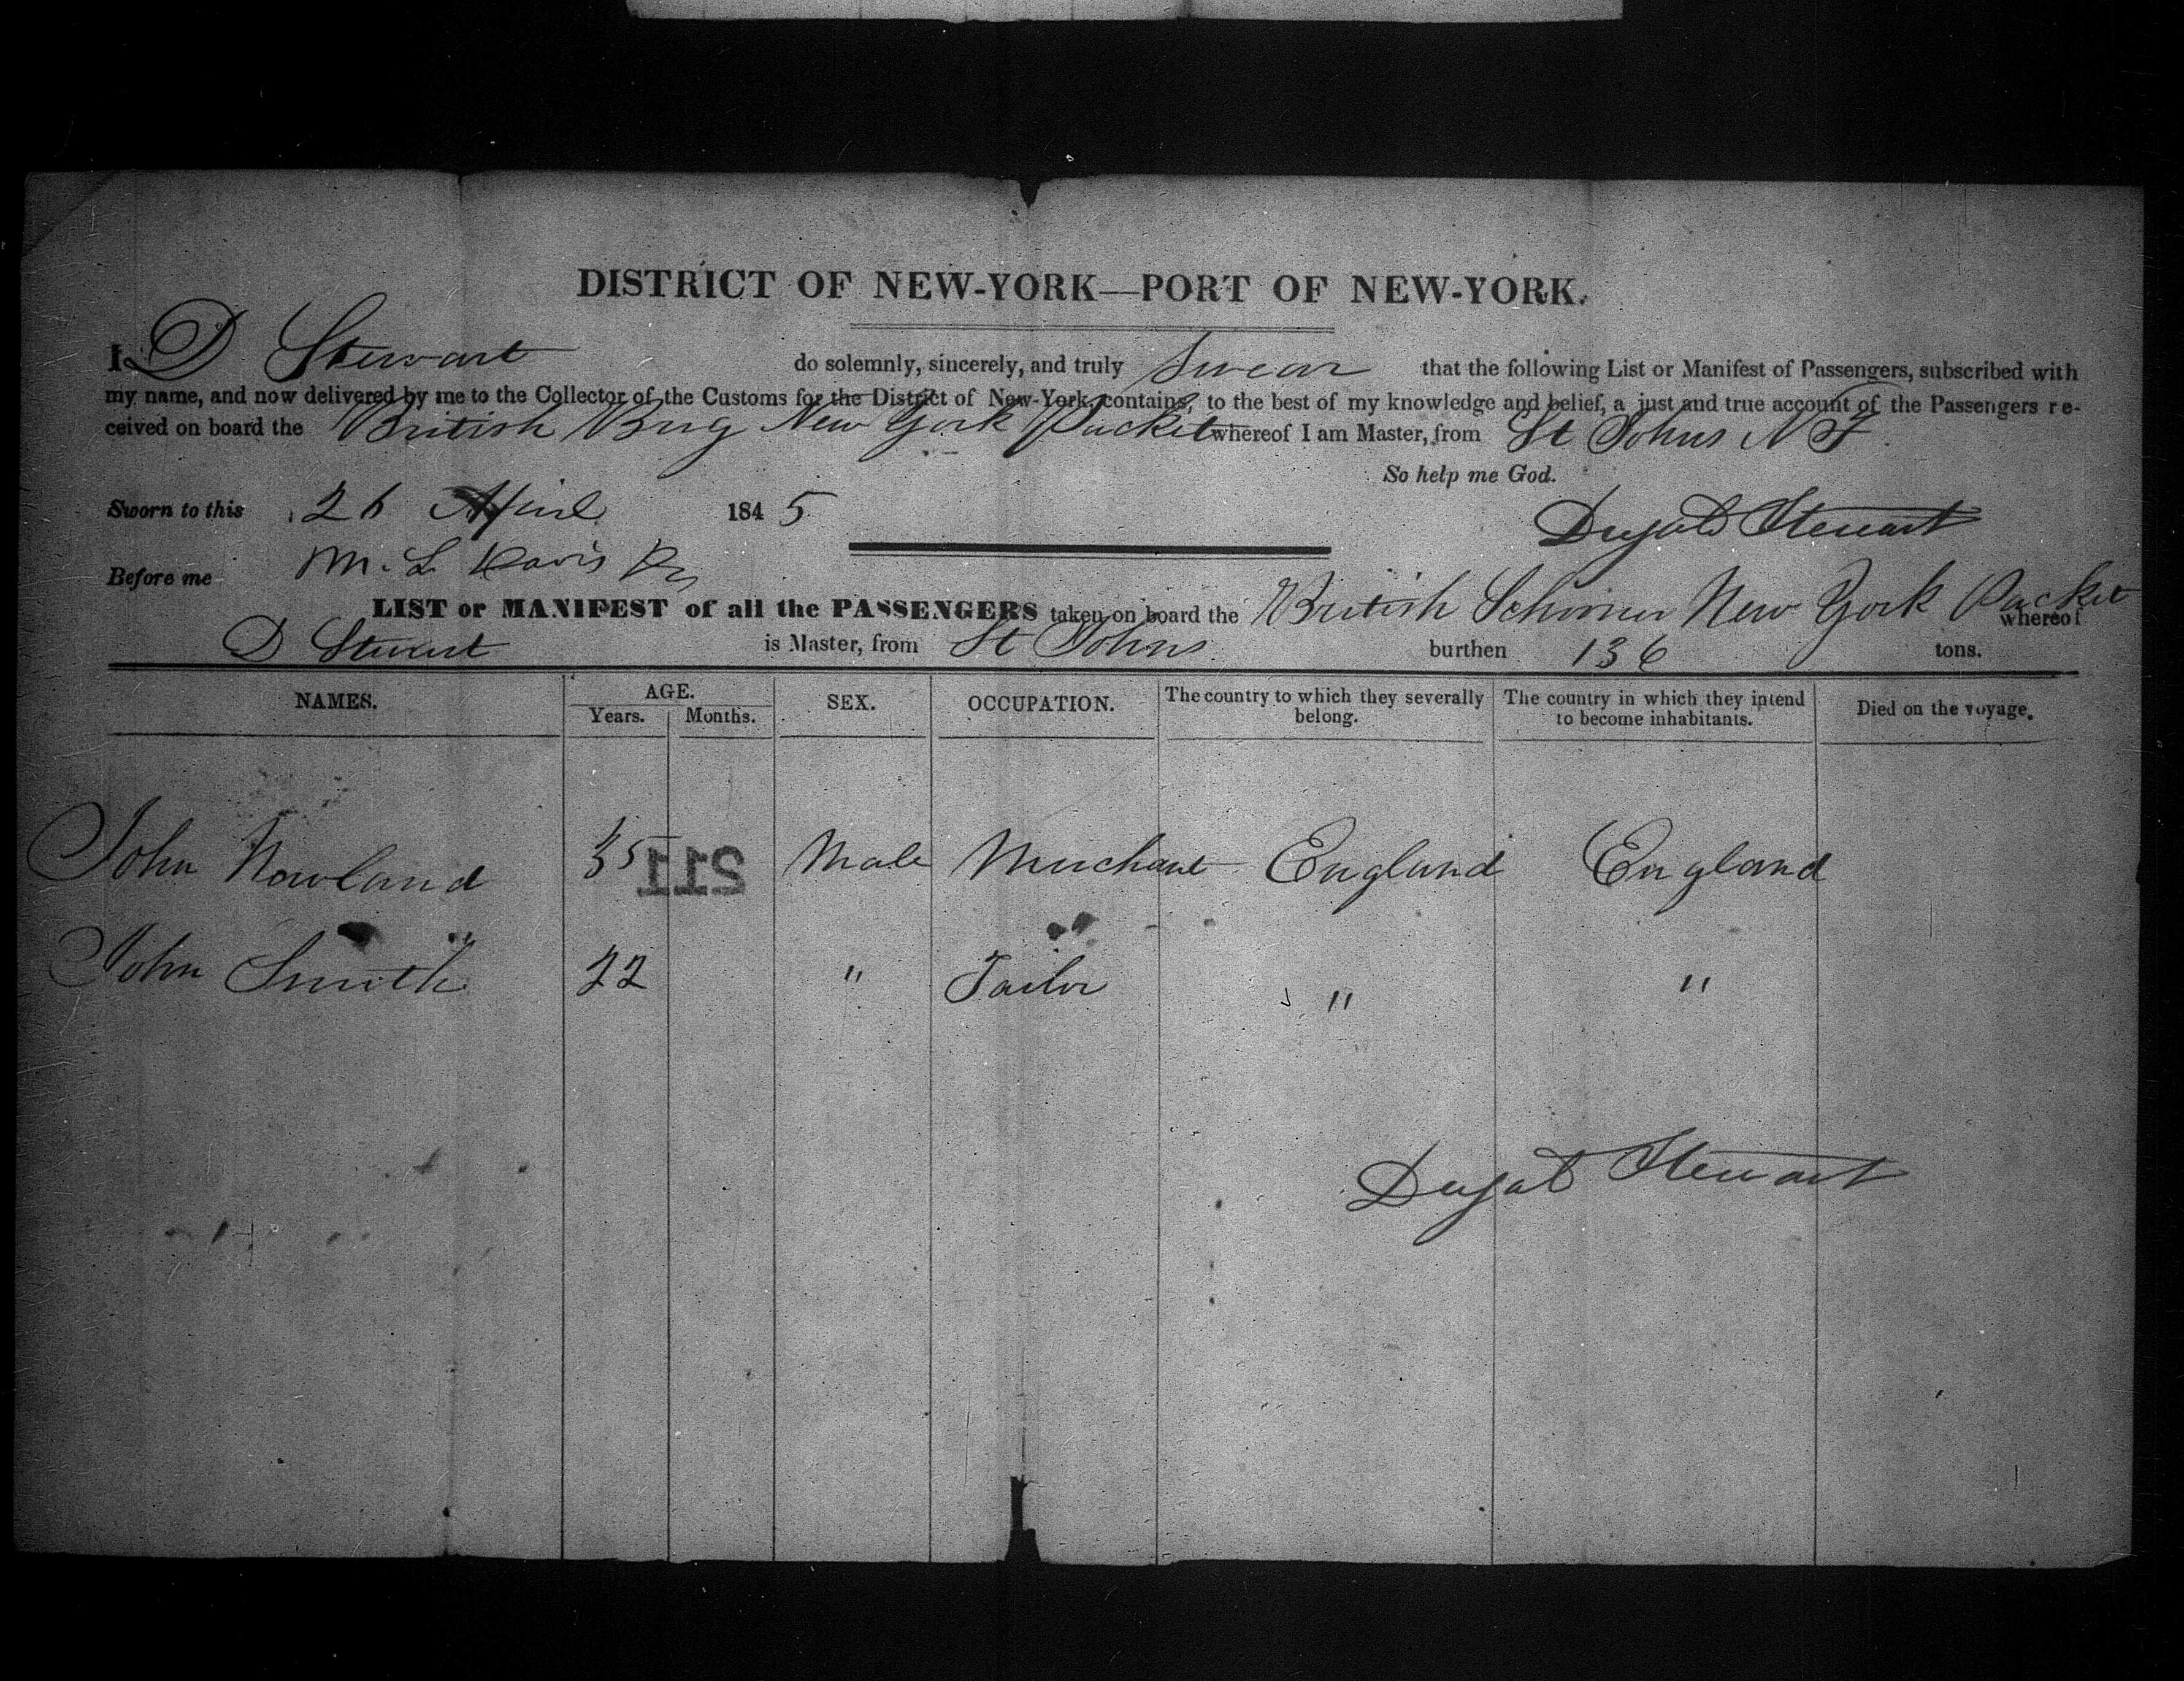 DISTRICT OF NEW-YORK—PORT OF NEW-YORK.
I D Stewart do solemnly, sincerely, and truly swear that the following List or Manifest of Passengers, subscribed with
my name, and now delivered by me to the Collector of the Customs for the District of New-York, contains, to the best of my knowledge and belief, a just and true account of the Passengers re-
ceived on board the British Brig New York Packet whereof I am Master, from St Johns N F
So help me God.
Sworn to this 26 April 1845
Dugald Stewart
Before me M. L Davis
LIST or MANIFEST of all the PASSENGERS taken on board the British Schooner New York Packet whereof
D Stewart is Master, from St Johns burthen 136 tons.
NAMES. AGE. SEX. OCCUPATION. The country to which they severally belong. The country in which they intend to become inhabitants. Died on the voyage.
Years. Months.
John Nowland 35 Male Merchant England England
211
John Smith 22 " Tailor " "
Dugald Stewart